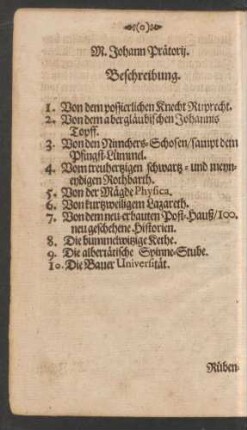 (o)
M. Johann Prätorij.
Beschreibung.
1. Von dem possierlichen Knecht Ruprecht.
2. Von dem abergläubischen Johannis
Topff.
3. Von den Nimchers-Schosen / sampt dem
Pfingst-Lümmel.
4. Vom treuhertzigen schwartz- und meyn-
eydigen Rothbarth.
5. Von der Mägde Physica.
6. Von kurtzweiligem Lazareth.
7. Von dem neu-erbauten Post-Hauß / 100.
neu geschehene Historien.
8. Die hummelwitzige Kethe.
9. Die albertätische Spinne-Stube.
10. Die Bauer Universität.
Rüben-